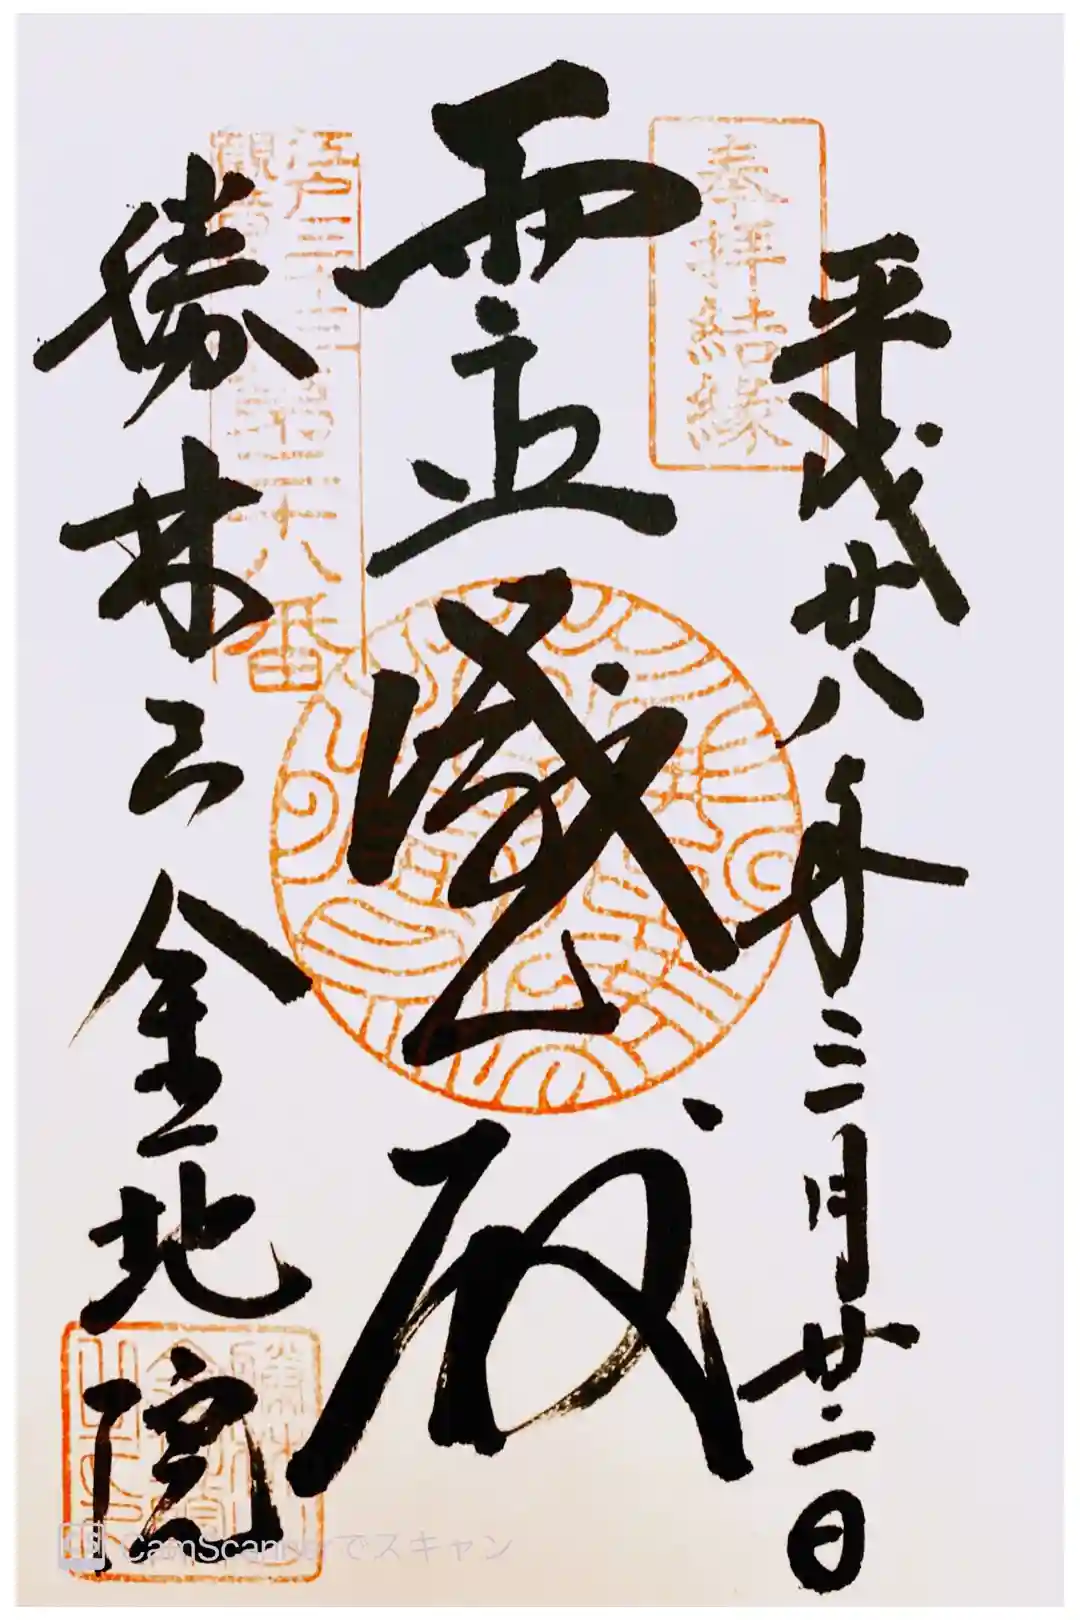 平成廿八年三月廿二日
奉拝結縁
霊感殿
江戸三十三
観音第二十八番
勝林山金地院
CamScannerでスキャン